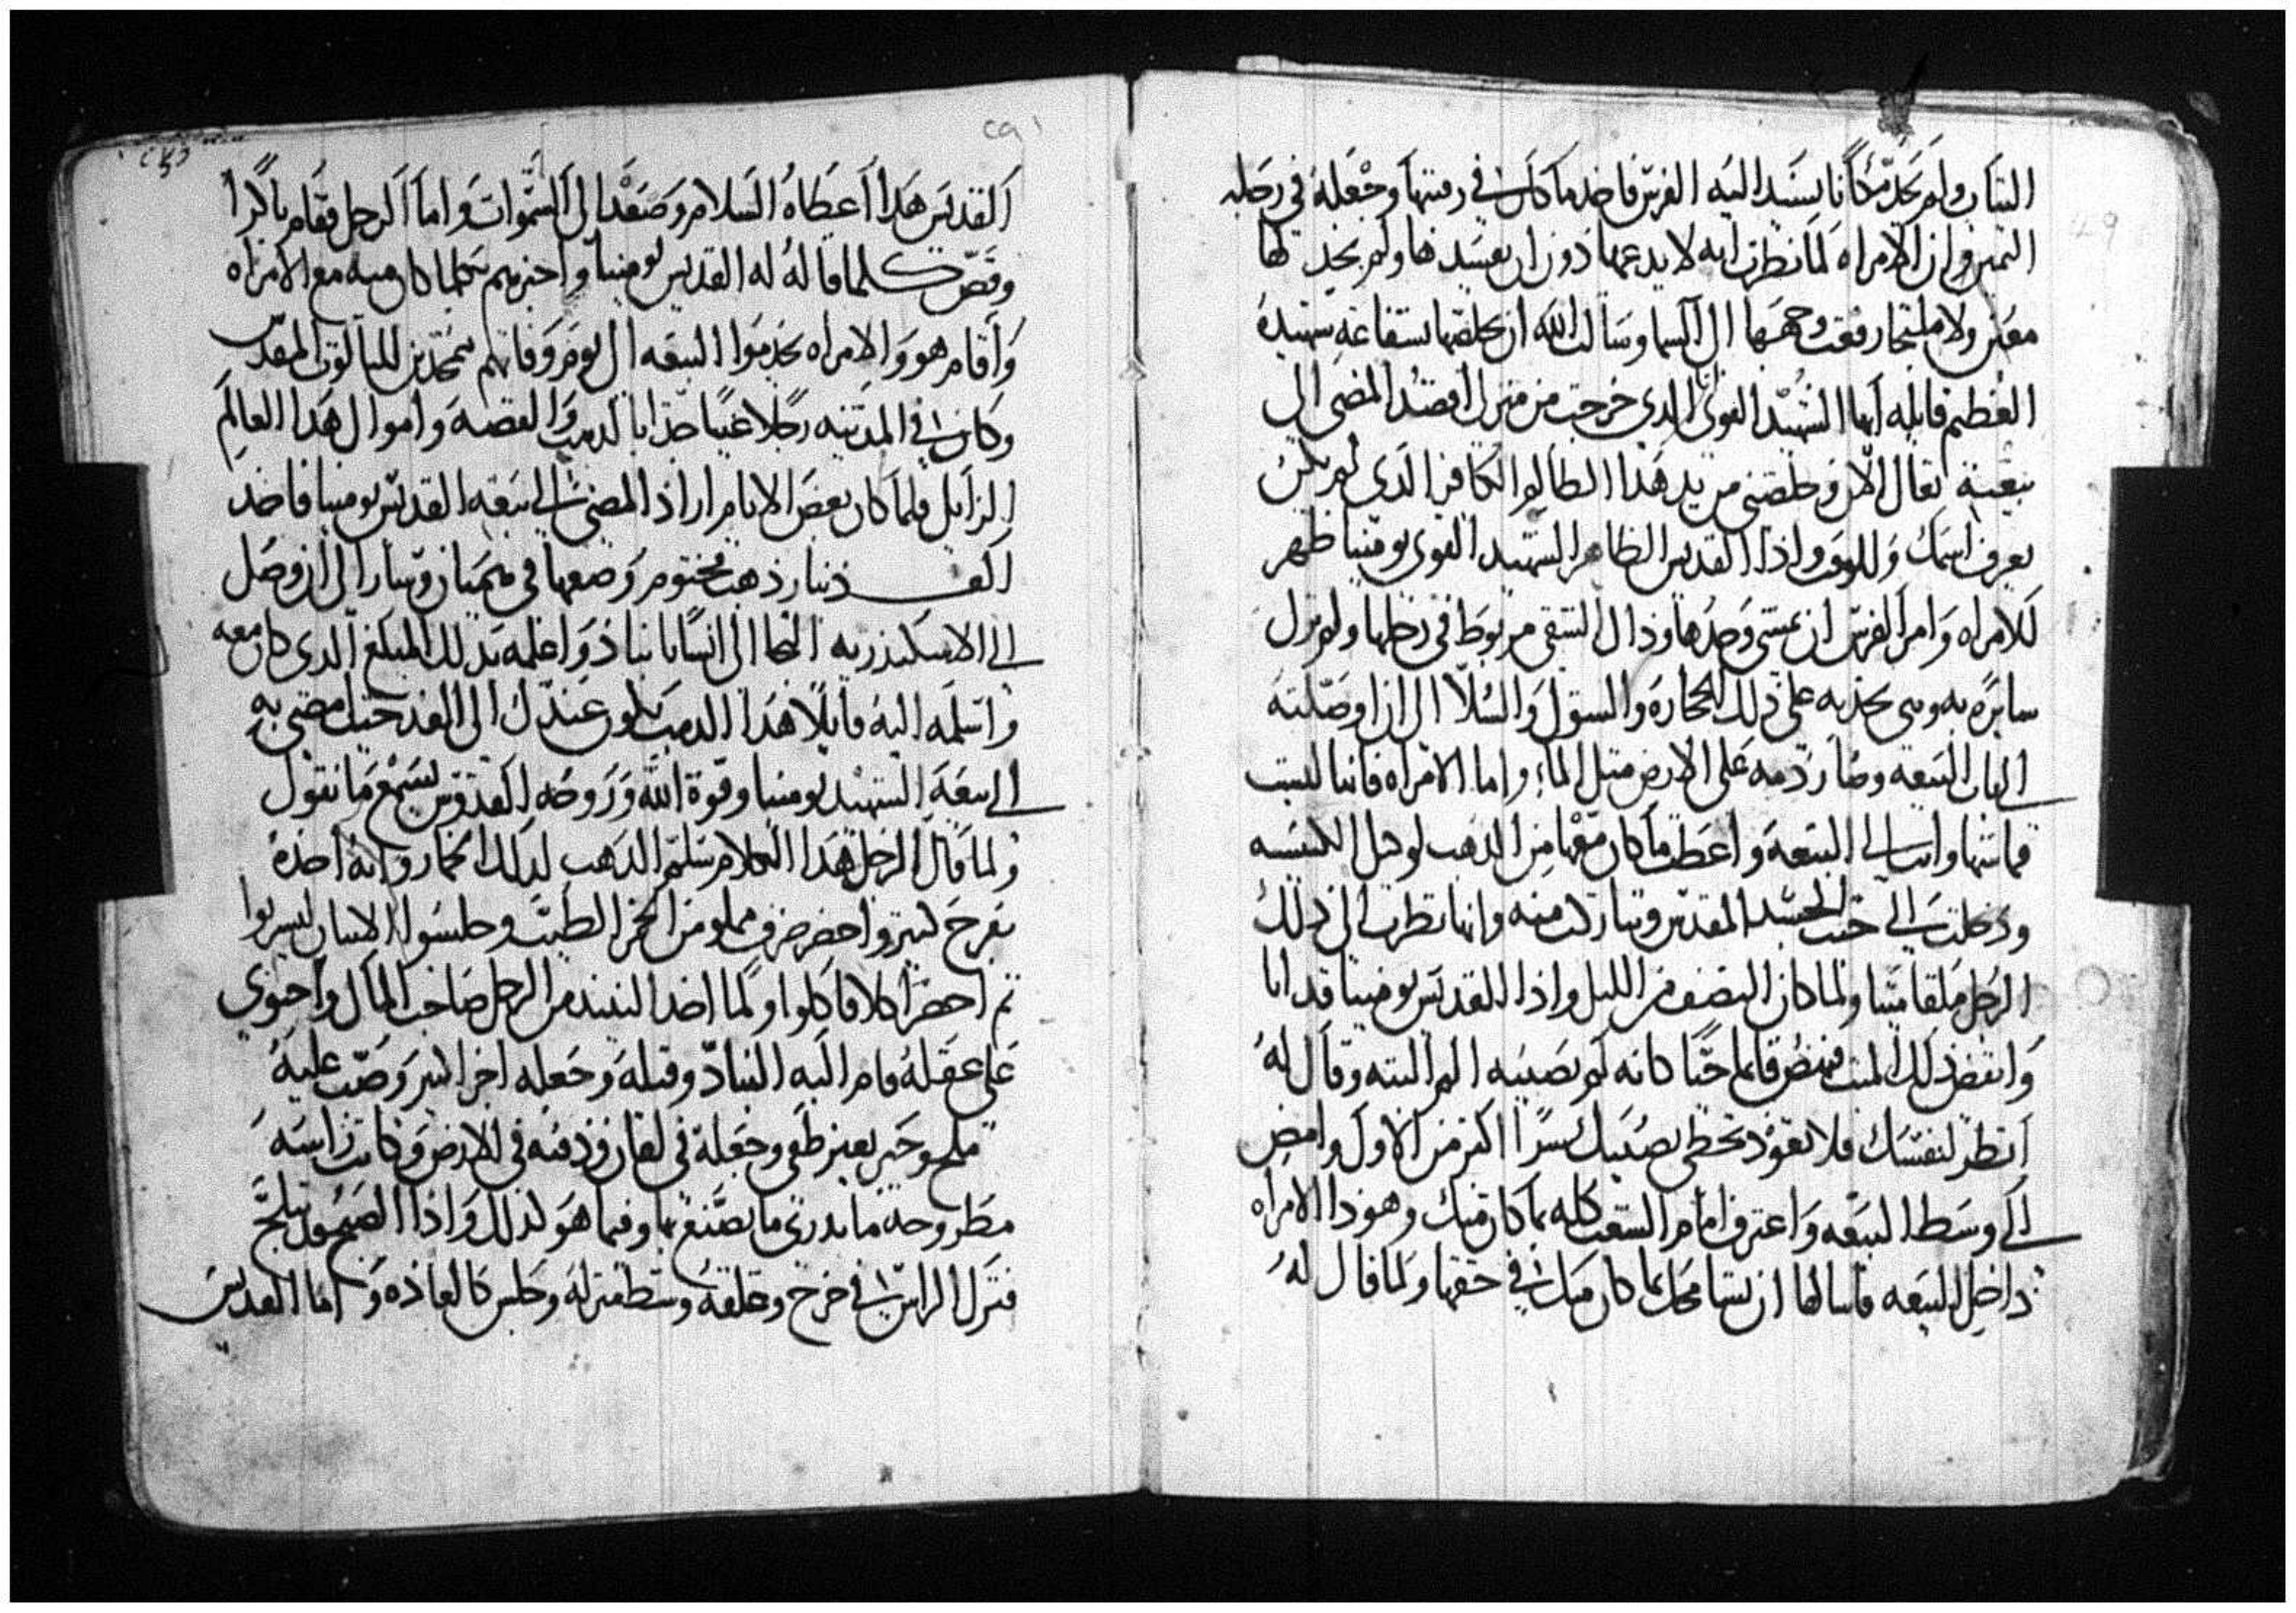 الشاب ولم يجد مكانا يسند اليه الفرس فاخد ما كان في رقبتها وجعله في رجله
اليمين وان الامراه لما نظرت انه لا يدعها دون ان يفسدها ولم يجد لها
معين ولا ملتجا رفعت وجهها الى السما وسالت الله ان يخلصها بشفاعة شهيده
العظيم قايله ايها الشهيد القوي الدي خرجت من منزلي اقصد المضي الى
بيعته تعال الان وخلصني من يد هدا الطالم الكافر الدي لم يكن
يعرف اسمك وللوقت واذا القديس الطاهر الشهيد القوي بو مينا ظهر
للامراه وامر الفرس ان تمشي وحدها وذاك الشقي مربوط في رجلها ولم تزل
سايره به وهي تجذبه على تلك الحجاره والشوك والسلا الى ان اوصلته
الى باب البيعه وصار دمه على الارض متل الماء واما الامراه فانها لبست
قماشها واتت الى البيعه واعطت ما كان معها من الدهب لوكيل الكنيسه
ودخلت الى حيت الجسد المقدس وتباركت منه وانها نظرت الى ذلك
الرجل ملقا ميتا ولما كان النصف من الليل واذا القديس بو مينا قد اتا
وانهض ذلك الميت فنهض قايما حيا كانه لم يصيبه الم البته وقال له
انظر لنفسك فلا تعود تخطي يصيبك شرا اكتر من الاول وامض
الى وسط البيعه واعترف امام الشعب كله بما كان منك وهوذا الامراه
داخل البيعه فاسالها ان تسامحك بما كان منك في حقها ولما قال له
القديس هدا اعطاه السلام وصعد الى السموات واما الرجل فقام باكرا
وقص كلما قاله له القديس بو مينا واخبرهم بكلما كان منه مع الامراه
واقام هو والامراه يخدموا البيعه الى يوم وفاتهم ممجدين للتالوت المقدس
وكان في المدينه رجلا غنيا جدا بالدهب والفضه واموال هدا العالم
الزايل فلما كان بعض الايام اراد المضي الى بيعه القديس بو مينا فاخد
الف دينار ذهب مختوم وضعها في هميان وسار الى ان وصل
الى الاسكندريه التجا الى انسانا نباذ واعلمه بدلك المبلغ الدي كان معه
واسلمه اليه قايلا هدا الدهب يكون عندك الى الغد حيت امضي به
الى بيعة الشهيد بو مينا وقوة الله وروحه القدوس يسمع ما نقول
ولما قال الرجل هدا الكلام سلم الدهب لدلك الخمار وانه اخده
بفرح كتير واحضر ظرف مملو من الخمر الطيب وجلسوا الاتنان ليشربوا
تم احضر اكلا فاكلوا ولما اخد النبيد من الرجل صاحب المال واحتوى
على عقله قام اليه النباد وقتله وجعله اجزا كتير وصب عليه
ملح وجير بغير طفي وجعله في افان ودفنه في الارض وكانت راسه
مطروحه ما يدري ما يصنع بها وفيما هو كذلك واذا الصبح تبلج
فترك الراس في خرج وعلقه وسط منزله وجلس كالعاده واما القديس